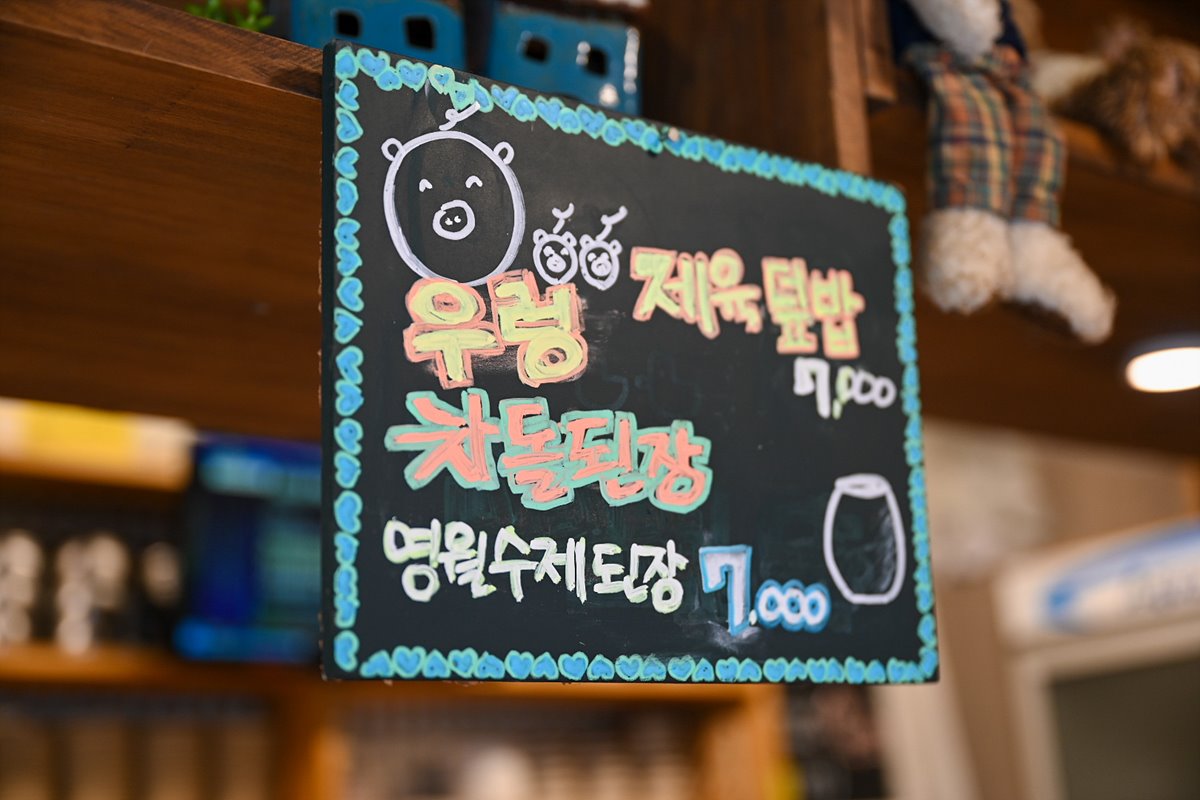 제육덮밥
7,000
우렁
차돌된장
영월수제된장 7.000